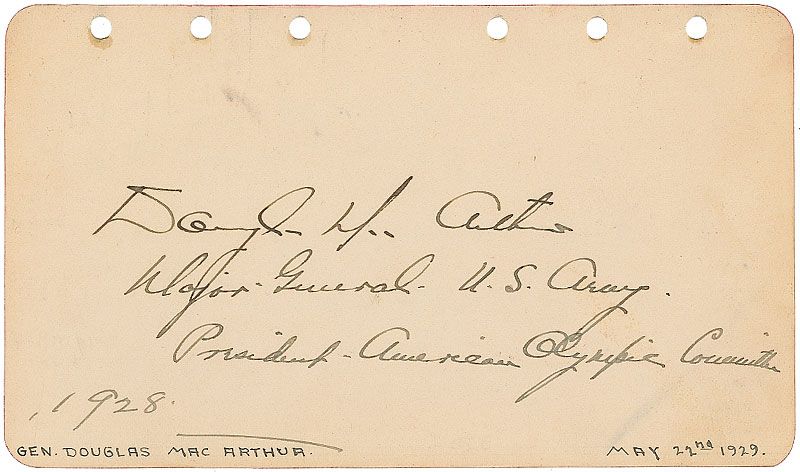 Douglas MacArthur
Major-General - U.S. Army.
President - American Olympic Committee
1928.
GEN. DOUGLAS MAC ARTHUR.
MAY 22nd 1929.